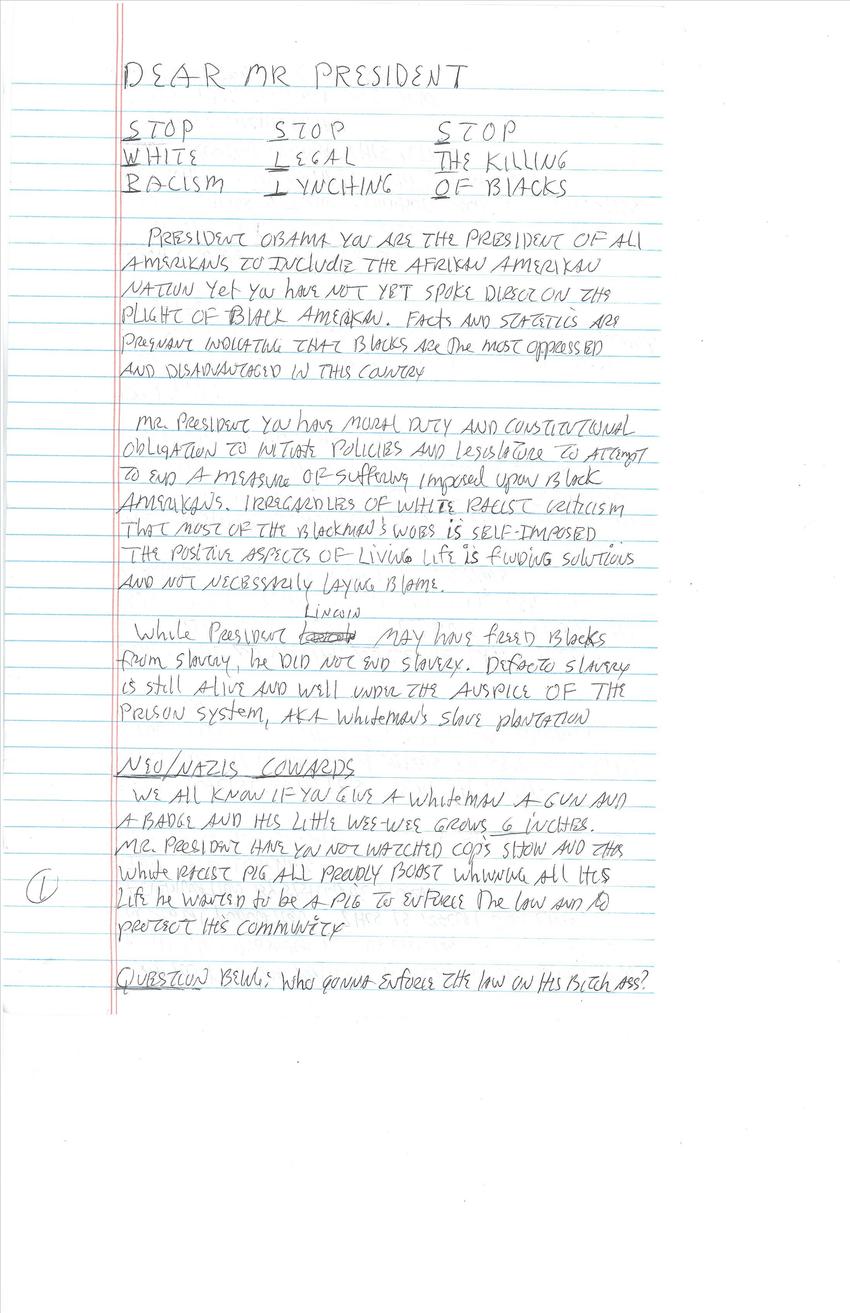 DEAR MR PRESIDENT
STOP STOP STOP
WHITE LEGAL THE KILLING
RACISM LYNCHING OF BLACKS
PRESIDENT OBAMA YOU ARE THE PRESIDENT OF ALL
AMERIKANS TO INCLUDE THE AFRIKAN AMERIKAN
NATION YET YOU HAVE NOT YET SPOKE DIRECT ON THE
PLIGHT OF BLACK AMERIKAN. FACTS AND STATETICS ARE
PREGNANT INDICATING THAT BLACKS ARE The MOST OPPRESSED
AND DISADVANTAGED IN THIS COUNTRY
MR. PRESIDENT YOU HAVE MORAL DUTY AND CONSTITUTIONAL
OBLIGATION TO INITIATE POLICIES AND LEGISLATURE TO ATTEMPT
TO END A MEASURE OF SUFFERING IMPOSED UPON BLACK
AMERIKANS. IRREGARDLES OF WHITE RACIST CRITICISM
THAT MOST OF THE BLACKMAN'S WOES IS SELF-IMPOSED.
THE POSITIVE ASPECTS OF LIVING LIFE IS FINDING SOLUTIONS
AND NOT NECESSARILY LAYING BLAME.
LINCOLN
While PRESIDENT MAY HAVE FREED BLACKS
FROM SLAVERY, he DID NOT END SLAVERY. DEFACTO SLAVERY
IS STILL ALIVE AND WELL UNDER THE AUSPICE OF THE
PRISON SYSTEM, AKA WHITEMAN'S SLAVE PLANTATION
NEO/NAZIS COWARDS
WE ALL KNOW IF YOU GIVE A WHITEMAN A GUN AND
A BADGE AND HIS LITTLE WEE-WEE GROWS 6 INCHES.
MR. PRESIDENT HAVE YOU NOT WATCHED COPS SHOW AND THIS
WHITE RACIST PIG ALL PROUDLY BOAST WHINNING ALL HIS
LIFE he WANTED to be A PIG TO ENFORCE The LAW AND TO
PROTECT HIS COMMUNITY
1
QUESTION BEING: WHO GONNA ENFORCE THE LAW ON HIS BITCH ASS?